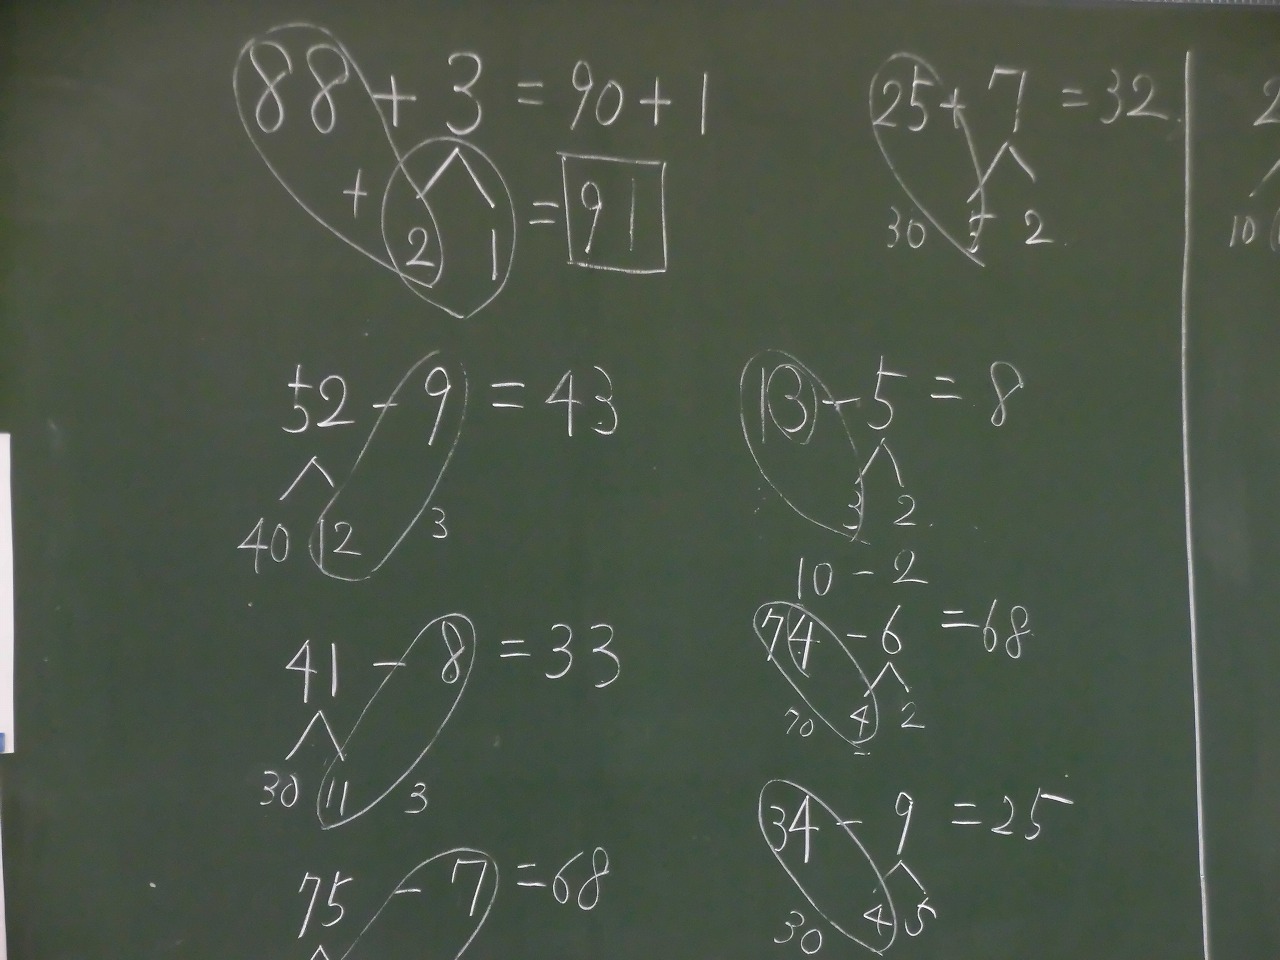 88 + 3 = 90 + 1
+ 2 1 = 91
25 + 7 = 32
30 5 2
10
52 - 9 = 43
40 12 3
13 - 5 = 8
3 2
10 - 2
41 - 8 = 33
30 11 3
74 - 6 = 68
70 4 2
75 - 7 = 68
34 - 9 = 25
30 4 5